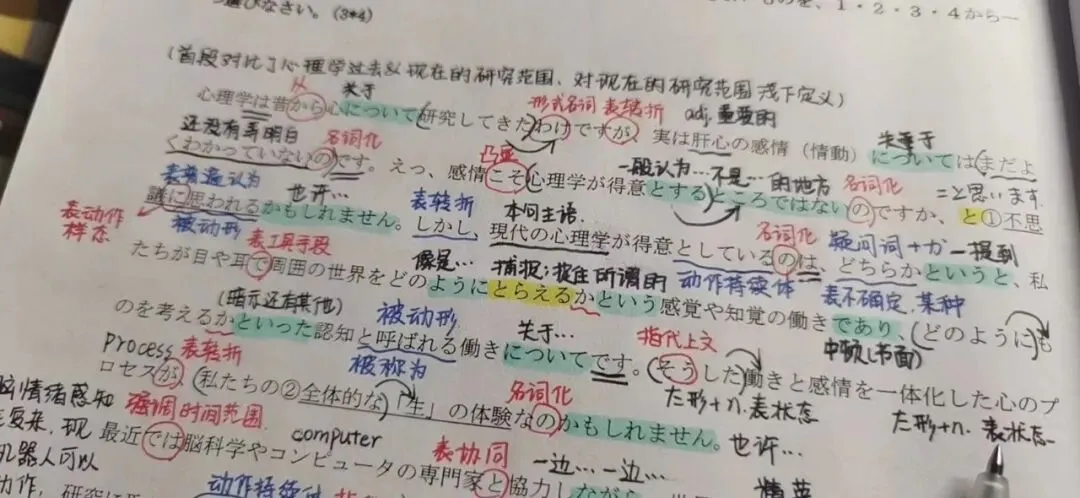 選びなさい。(3*4) ものを、1・2・3・4から一
(首段对比了心理学过去&现在的研究范围、对现在的研究范围下定义)
从 关于 形式名词 表转折 adj. 重要的
心理学は昔から心について(研究してきたわけですが、実は肝心の感情(情動)については(まだよ
还没有弄明白 名词化 凸显 一般认为…不是…的地方 名词化 关于 こと思います
くわかっていないの)です。えっ、感情こそ(心理学が得意とするところではないのですか、と①不思
表普遍认为 也许… 表转折 本句主语 名词化 疑问词+か 一提到
議に思われるかもしれません。しかし、現代の心理学が得意としているのは、どちらかというと、私
表动作样态 被动形 表工具手段 像是… 捕捉;捉住 所谓的 动作持续体 表不确定、某种
たちが目や耳で周囲の世界をどのようにとらえるかという感覚や知覚の働きであり、(どのように)も
(暗示还有其他) 被动形 关于… 指代上文 中顿(书面)
のを考えるかといった認知と呼ばれる働きについてです。(そうした)働きと感情を一体化した心のプ
process 表转折 被称为 名词化 た形+n.表状态 た形+n. 表状态
ロセスが、(私たちの②全体的な)「生」の体験なのかもしれません。也许…
脑情绪感知 强调时间范围 computer 表协同 一边…一边…
最近では脳科学やコンピュータの専門家と協力しながら、
机器人可以
动作持续体 精英